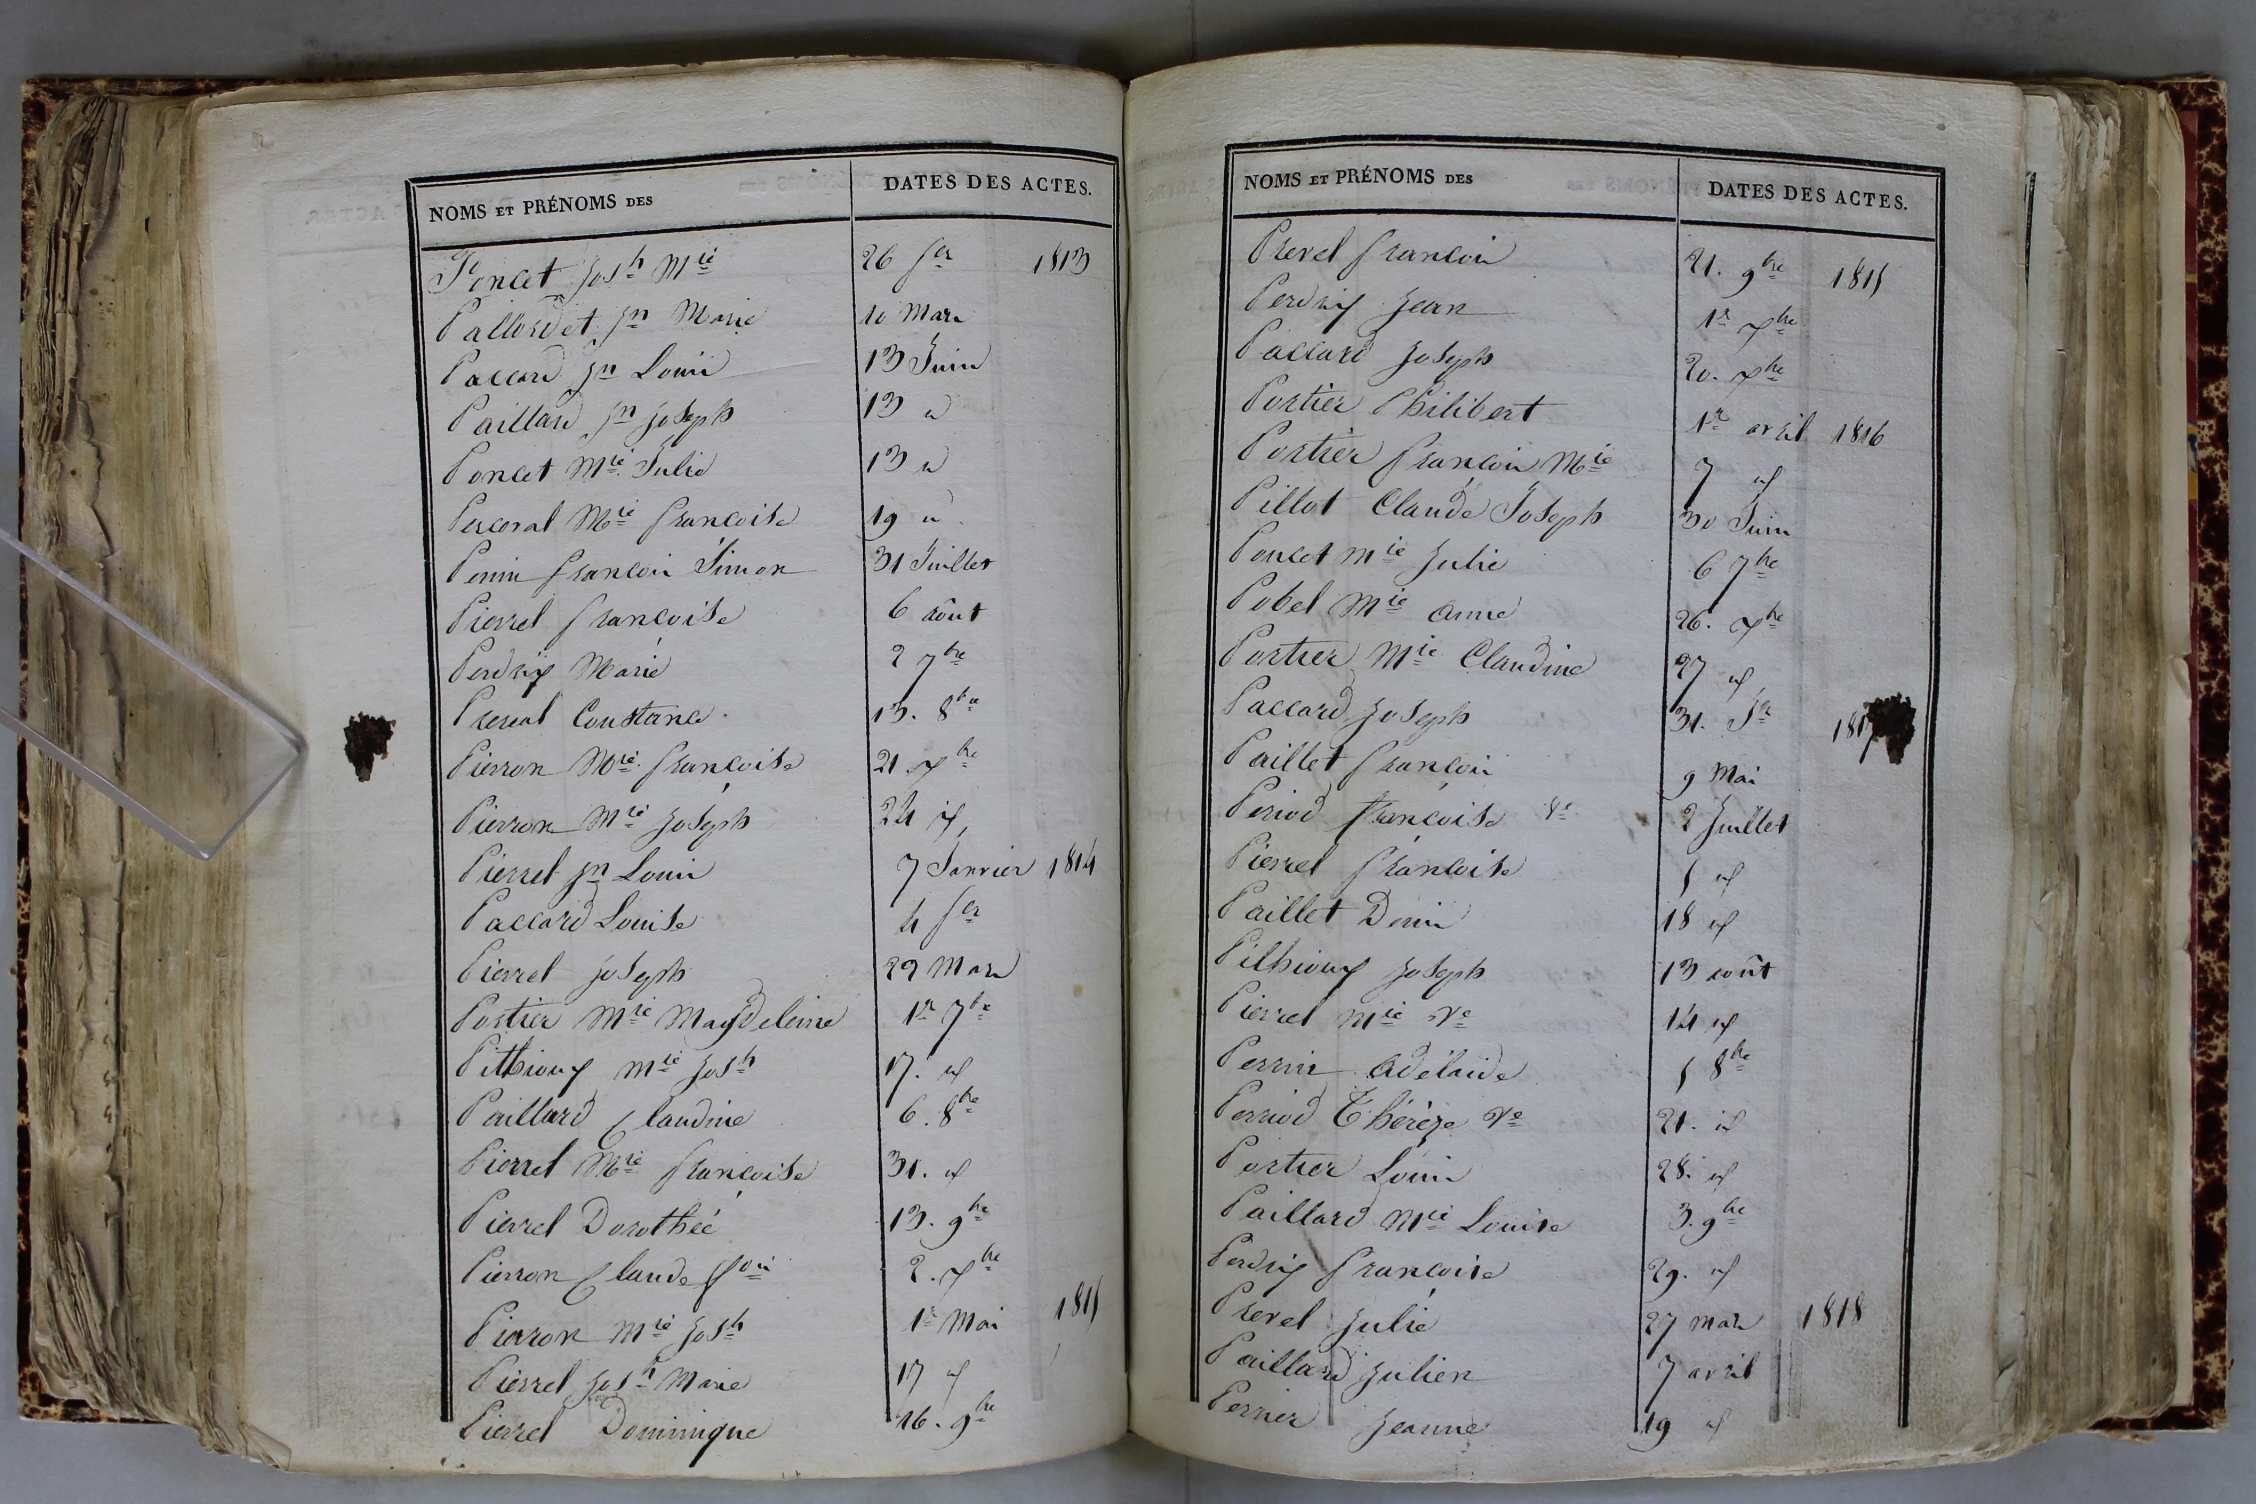 NOMS ET PRÉNOMS DES DATES DES ACTES.
Poncet Josh Mie 26 fer 1813
Pallordet Jn Marie 10 Mars
Paccard Jn Louis 13 Juin
Paillard Jn Joseph 13 "
Poncet Mie Julie 13 "
Perceval Mie françoise 19 "
Penin françois Simon 31 Juillet
Pierrel françoise 6 août
Perdrix Marie 2 7bre
Preseal Constance 13. 8bre
Pierron Mie françoise 21 Xbre
Pierron Mie Joseph 24 id
Pierrel Jn Louis 7 Janvier 1814
Paccard Louise 4 fer
Pierrel Joseph 22 Mars
Portier Mie Magdeleine 1er 7bre
Pithioux Mie Josh 17. id
Paillard Claudine 6. 8bre
Pierrel Mie françoise 31. id
Pierrel Dorothée 13. 9bre
Pierron Claude fois 2. Xbre
Pierron Mie Josh 1er Mai 1815
Pierrel Josh Marie 17 id
Pierrel Dominique 16. 9bre
NOMS ET PRÉNOMS DES DATES DES ACTES.
Prevel françois 21. 9bre 1815
Perdrix Jean 1er Xbre
Paccard Joseph 20. Xbre
Portier Philibert 1er avril 1816
Portier françois Mie 7 id
Pillot Claude Joseph 30 Juin
Poncet Mie Julie 6 7bre
Pobel Mie anne 26. Xbre
Portier Mie Claudine 27 id
Paccard Joseph 31. Jer 1817
Paillet françois 9 Mai
Period françoise Ve 2 Juillet
Pierrel françoise 5 id
Paillet Denis 18 id
Pithioux Joseph 13 août
Pierrel Mie Ve 14 id
Perrin adélaide 5 8bre
Perriod Thérèze Ve 21. id
Portier Louis 28. id
Paillard Mie Louise 3. 9bre
Perdrix françoise 29. id
Prevel Julie 27 mars 1818
Paillard Julien 7 avril
Perrier Jeanne 19 id